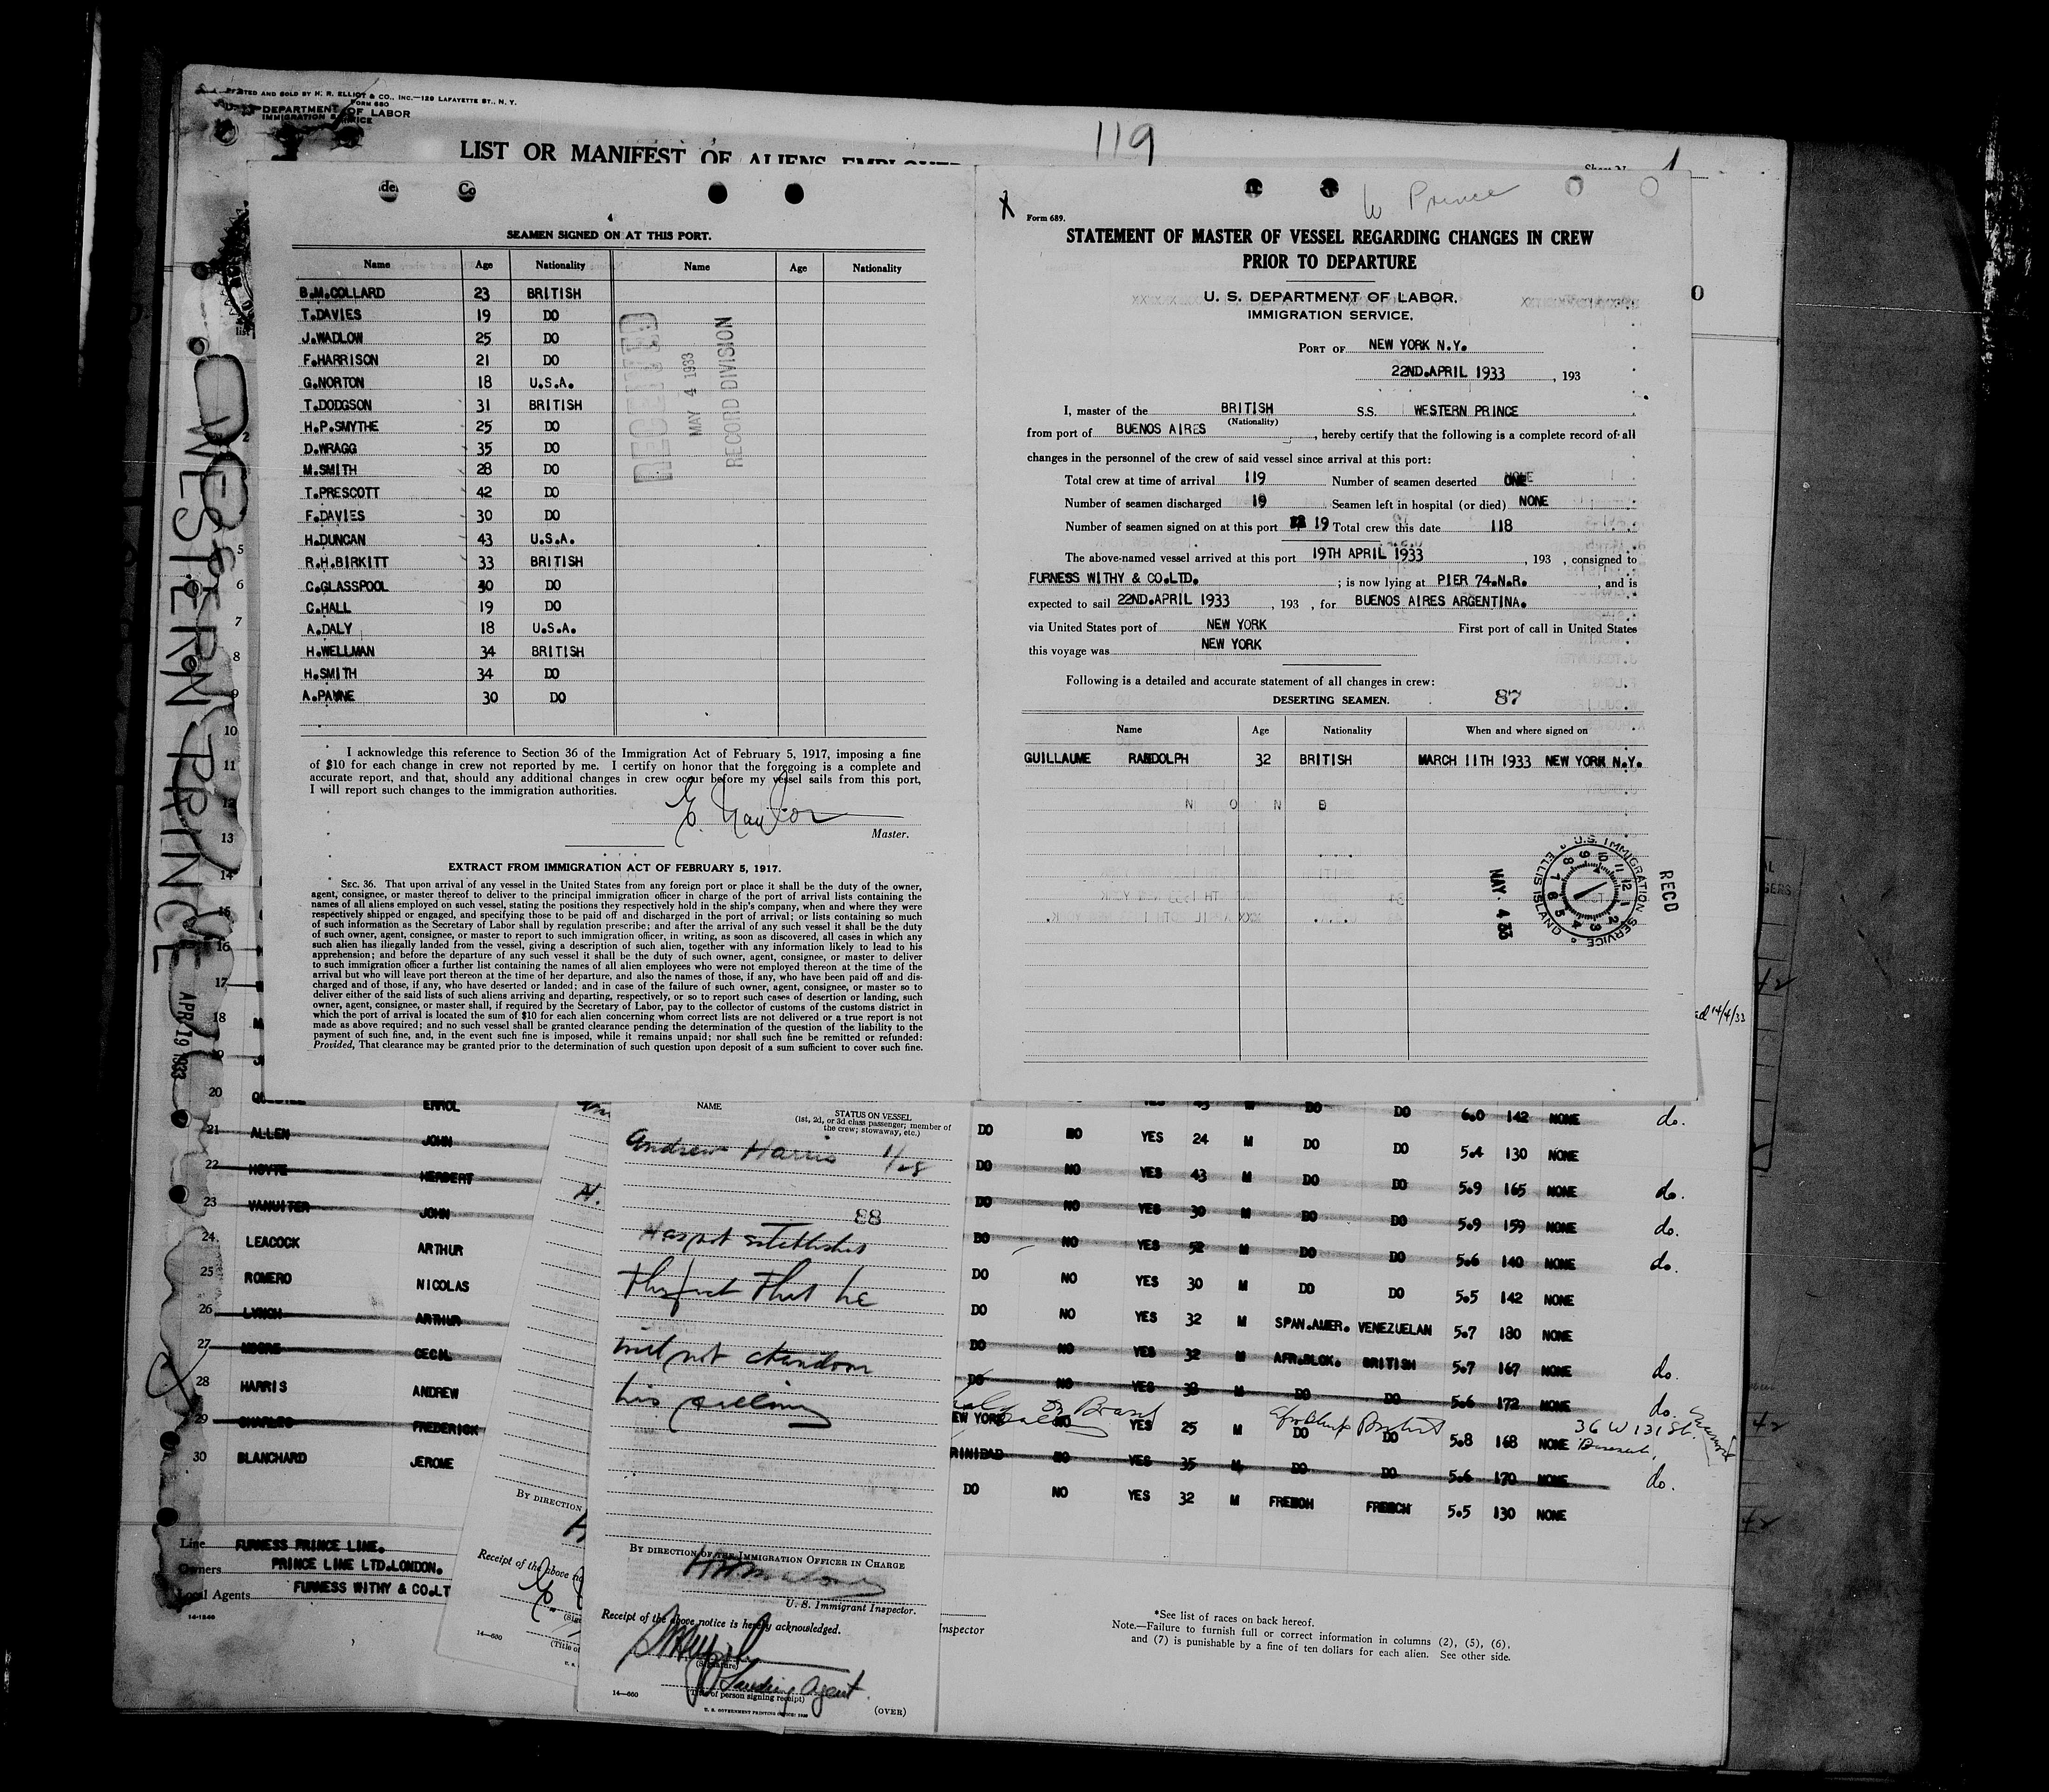 PRINTED AND SOLD BY H. R. ELLIOT & CO., INC.—129 LAFAYETTE ST., N. Y.
FORM 680
DEPARTMENT OF LABOR
IMMIGRATION SERVICE
LIST OR MANIFEST OF ALIENS EMPLOYED
119
1
WESTERN PRINCE
APR 19 1933
4
SEAMEN SIGNED ON AT THIS PORT.
Name Age Nationality Name Age Nationality
B.M.COLLARD 23 BRITISH
T.DAVIES 19 DO
J.WADLOW 25 DO
F.HARRISON 21 DO
G.NORTON 18 U.S.A.
T.DODGSON 31 BRITISH
H.P.SMYTHE 25 DO
D.WRAGG 35 DO
M.SMITH 28 DO
T.PRESCOTT 42 DO
F.DAVIES 30 DO
H.DUNCAN 43 U.S.A.
R.H.BIRKITT 33 BRITISH
C.GLASSPOOL 30 DO
C.HALL 19 DO
A.DALY 18 U.S.A.
H.WELLMAN 34 BRITISH
H.SMITH 34 DO
A.PAYNE 30 DO
RECEIVED
MAY 4 1933
RECORD DIVISION
I acknowledge this reference to Section 36 of the Immigration Act of February 5, 1917, imposing a fine
of $10 for each change in crew not reported by me. I certify on honor that the foregoing is a complete and
accurate report, and that, should any additional changes in crew occur before my vessel sails from this port,
I will report such changes to the immigration authorities.
Master.
EXTRACT FROM IMMIGRATION ACT OF FEBRUARY 5, 1917.
SEC. 36. That upon arrival of any vessel in the United States from any foreign port or place it shall be the duty of the owner,
agent, consignee, or master thereof to deliver to the principal immigration officer in charge of the port of arrival lists containing the
names of all aliens employed on such vessel, stating the positions they respectively hold in the ship's company, when and where they were
respectively shipped or engaged, and specifying those to be paid off and discharged in the port of arrival; or lists containing so much
of such information as the Secretary of Labor shall by regulation prescribe; and after the arrival of any such vessel it shall be the duty
of such owner, agent, consignee, or master to report to such immigration officer, in writing, as soon as discovered, all cases in which any
such alien has illegally landed from the vessel, giving a description of such alien, together with any information likely to lead to his
apprehension; and before the departure of any such vessel it shall be the duty of such owner, agent, consignee, or master to deliver
to such immigration officer a further list containing the names of all alien employees who were not employed thereon at the time of the
arrival but who will leave port thereon at the time of her departure, and also the names of those, if any, who have been paid off and dis-
charged and of those, if any, who have deserted or landed; and in case of the failure of such owner, agent, consignee, or master so to
deliver either of the said lists of such aliens arriving and departing, respectively, or so to report such cases of desertion or landing, such
owner, agent, consignee, or master shall, if required by the Secretary of Labor, pay to the collector of customs of the customs district in
which the port of arrival is located the sum of $10 for each alien concerning whom correct lists are not delivered or a true report is not
made as above required; and no such vessel shall be granted clearance pending the determination of the question of the liability to the
payment of such fine, and, in the event such fine is imposed, while it remains unpaid; nor shall such fine be remitted or refunded:
Provided, That clearance may be granted prior to the determination of such question upon deposit of a sum sufficient to cover such fine.
W Prince
X
Form 689.
STATEMENT OF MASTER OF VESSEL REGARDING CHANGES IN CREW
PRIOR TO DEPARTURE
U. S. DEPARTMENT OF LABOR,
IMMIGRATION SERVICE.
PORT OF NEW YORK N.Y.
22ND.APRIL 1933 , 193
I, master of the BRITISH S.S. WESTERN PRINCE
(Nationality)
from port of BUENOS AIRES , hereby certify that the following is a complete record of all
changes in the personnel of the crew of said vessel since arrival at this port:
Total crew at time of arrival 119 Number of seamen deserted NONE
Number of seamen discharged 19 Seamen left in hospital (or died) NONE
Number of seamen signed on at this port 19 Total crew this date 118
The above-named vessel arrived at this port 19TH APRIL 1933 , 193 , consigned to
FURNESS WITHY & CO.LTD. ; is now lying at PIER 74.N.R. , and is
expected to sail 22ND.APRIL 1933 , 193 , for BUENOS AIRES ARGENTINA.
via United States port of NEW YORK First port of call in United States
this voyage was NEW YORK
Following is a detailed and accurate statement of all changes in crew:
DESERTING SEAMEN. 87
Name Age Nationality When and where signed on
GUILLAUME RANDOLPH 32 BRITISH MARCH 11TH 1933 NEW YORK N.Y.
N O N E
U.S. IMMIGRATION SERVICE ELLIS ISLAND
RECD
MAY 4 33
20 ERROL 6.0 142 NONE do.
21 ALLEN JOHN DO NO YES 24 M DO DO 5.4 130 NONE
22 HOYTE HERBERT DO NO YES 43 M DO DO 5.9 165 NONE do.
23 VANUITER JOHN DO NO YES 30 M DO DO 5.9 159 NONE do.
24 LEACOCK ARTHUR DO NO YES 52 M DO DO 5.6 140 NONE do.
25 ROMERO NICOLAS DO NO YES 30 M DO DO 5.5 142 NONE
26 LYNCH ARTHUR DO NO YES 32 M SPAN.AMER. VENEZUELAN 5.7 180 NONE
27 MOORE CECIL DO NO YES 32 M AFR.BLCK. BRITISH 5.7 167 NONE do.
28 HARRIS ANDREW DO NO YES 38 M DO DO 5.6 172 NONE do.
29 CHARLES FREDERICK NEW YORK NO YES 25 M DO DO 5.8 168 NONE 36 W 131 St.
30 BLANCHARD JEROME TRINIDAD NO YES 35 M DO DO 5.6 170 NONE do.
DO NO YES 32 M FRENCH FRENCH 5.5 130 NONE
NAME STATUS ON VESSEL
(1st, 2d, or 3d class passenger; member of
the crew; stowaway, etc.)
Andrew Harris 1/28
88
Has not established
the fact that he
will not abandon
his calling
BY DIRECTION OF THE IMMIGRATION OFFICER IN CHARGE
U. S. Immigrant Inspector.
Receipt of the above notice is hereby acknowledged.
(Signature)
Landing Agent.
(Title of person signing receipt)
14—660
U. S. GOVERNMENT PRINTING OFFICE
(OVER)
BY DIRECTION
Receipt of the above no
14—660
(Title of
Line FURNESS PRINCE LINE.
Owners PRINCE LINE LTD.LONDON.
Local Agents FURNESS WITHY & CO.LT
14-1240
Inspector
*See list of races on back hereof.
Note.—Failure to furnish full or correct information in columns (2), (5), (6),
and (7) is punishable by a fine of ten dollars for each alien. See other side.